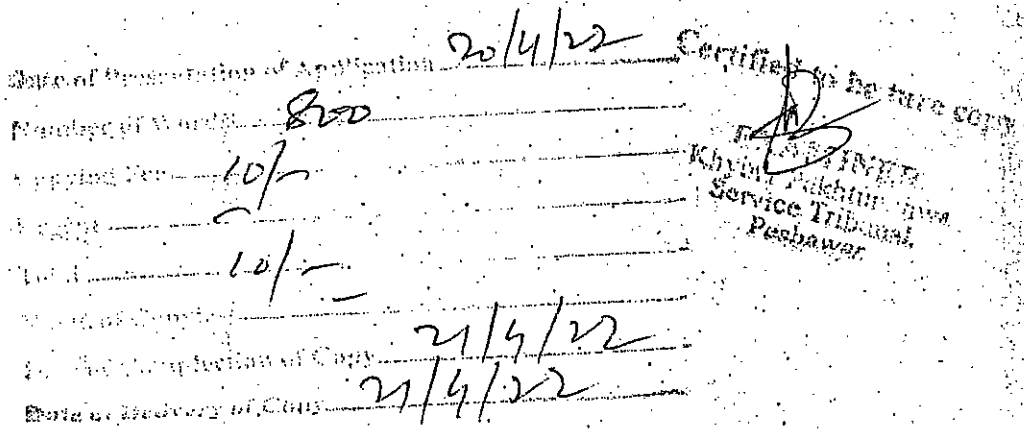 Date of Presentation of Application 20/4/22
Number of Words 800
Copying Fee 10/-
Urgent -
Total 10/-
Date of Completion of Copy 21/4/22
Date of Delivery of Copy 21/4/22
Certified to be ture copy
EXAMINER
Khyber Pakhtunkhwa
Service Tribunal,
Peshawar